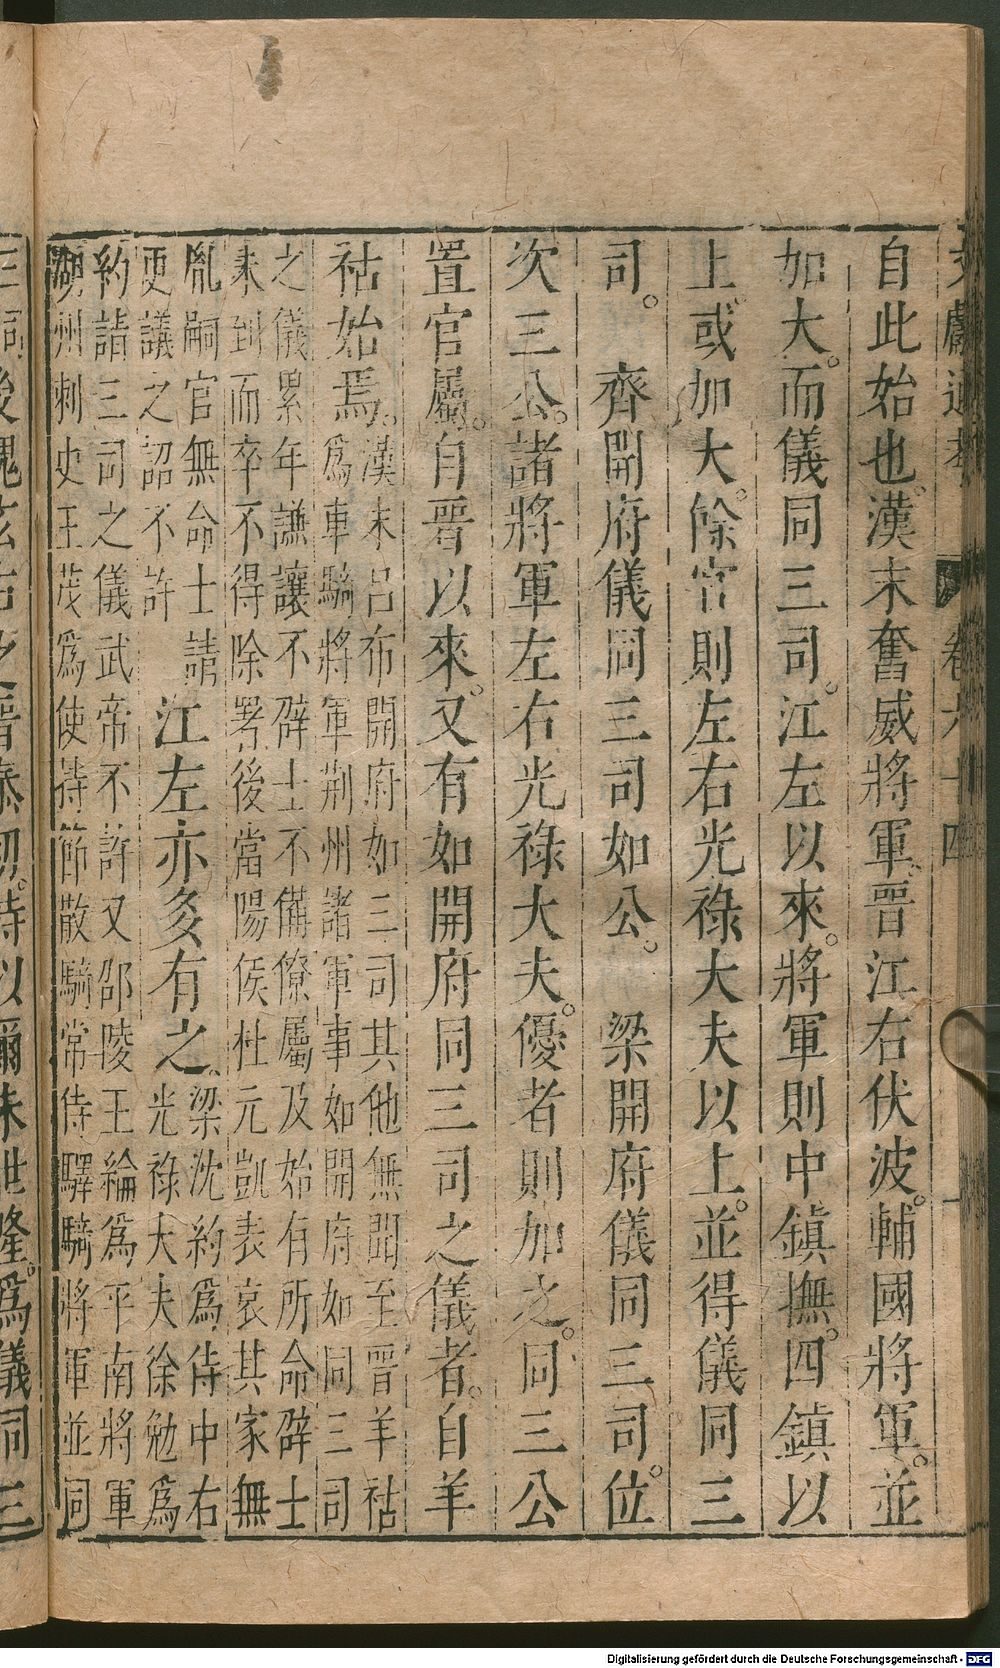 文獻通考 卷六十四
自此始也。漢末奮威將軍。晉江右伏波。輔國將軍。並
如大。而儀同三司。江左以來。將軍則中鎮撫。四鎮以
上或加大。餘官則左右光祿大夫以上。並得儀同三
司。 齊開府儀同三司如公。 梁開府儀同三司。位
次三公。諸將軍左右光祿大夫。優者則加之。同三公
置官屬。自晉以來。又有如開府同三司之儀者。自羊
祜始焉。
漢末呂布開府如三司其他無聞至晉羊祜
為車騎將軍荊州諸軍事如開府如同三司
之儀累年謙讓不辟士不備僚屬及始有所命辟士
未到而卒不得除署後當陽侯杜元凱表哀其家無
胤嗣官無命士請
更議之詔不許
江左亦多有之。
梁沈約為侍中右
光祿大夫徐勉為
約請三司之儀武帝不許又邵陵王綸為平南將軍
湖州刺史王茂為使持節散騎常侍驛騎將軍並同
Digitalisierung gefördert durch die Deutsche Forschungsgemeinschaft - DFG